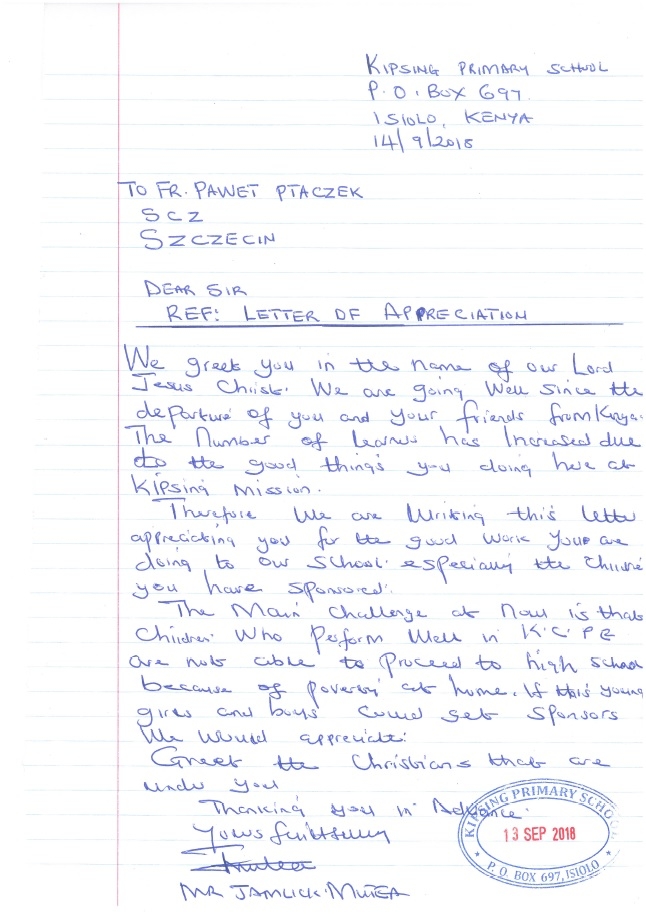 KIPSING PRIMARY SCHOOL
P.O. BOX 697
ISIOLO, KENYA
14/9/2018
TO FR. PAWET PTACZEK
SCZ
SZCZECIN
DEAR SIR
REF: LETTER OF APPRECIATION
We greet you in the name of our Lord
Jesus Christ. We are going well since the
departure of you and your friends from Kenya.
The Number of learners has Increased due
to the good things you doing here at
Kipsing Mission.
Therefore We are Writing this letter
appreciating you for the good work your are
doing to our school especially the Children
you have sponsored.
The Main Challenge at Now is that
Children Who Perform Well in K.C.P.E
are not able to Proceed to high school
because of poverty at home. If this young
girls and boys could get sponsors
We Would appreciate.
Greet the Christians that are
under you
Thanking you in Advance.
Yours faithfully
MR JAMLICK MUTEA
KIPSING PRIMARY SCHOOL
13 SEP 2018
* P. O. BOX 697, ISIOLO *